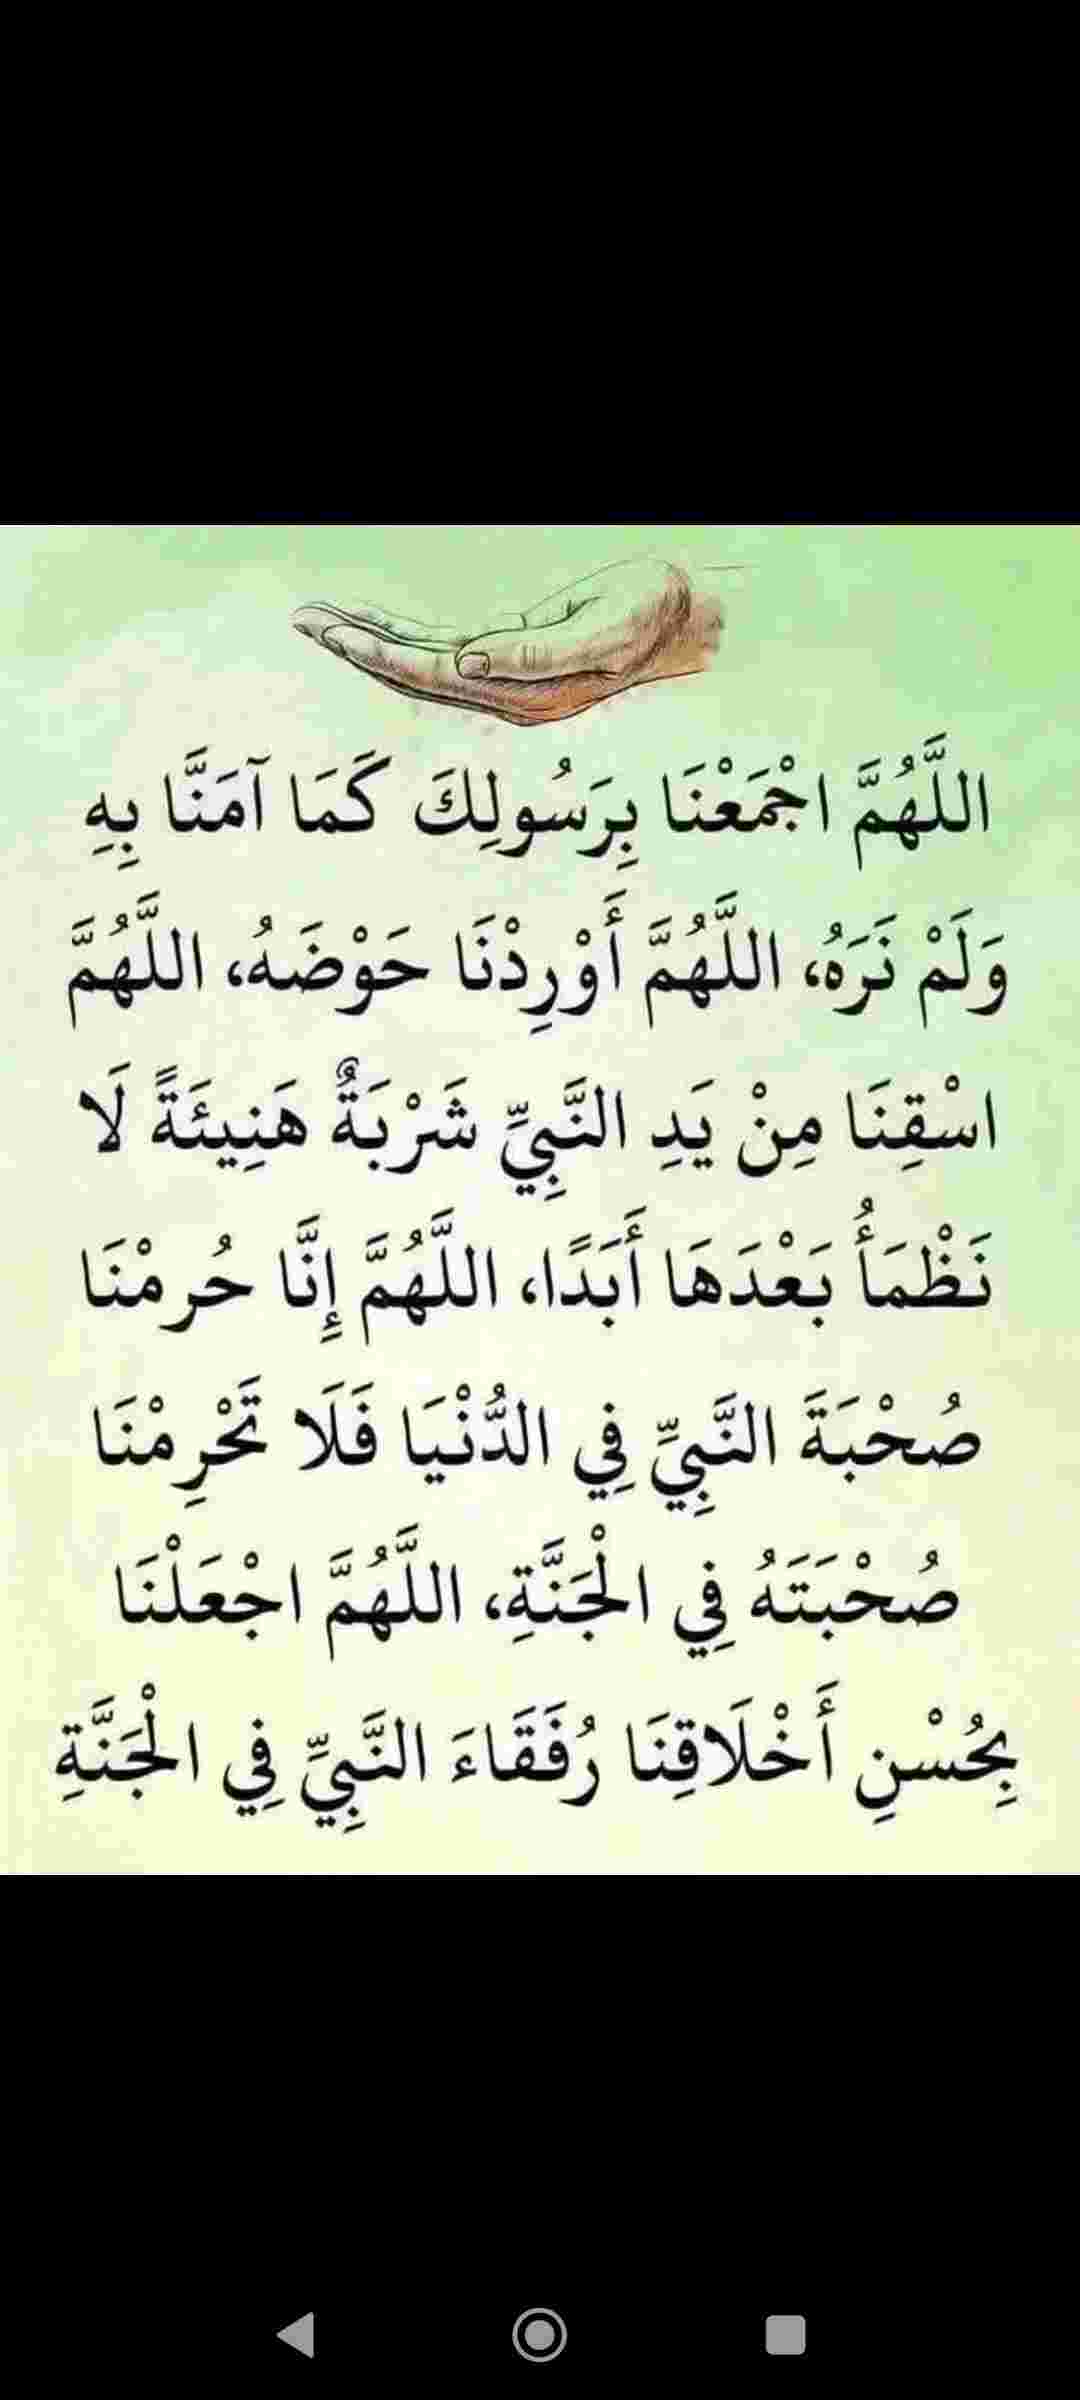 اللَّهُمَّ اجْمَعْنَا بِرَسُولِكَ كَمَا آمَنَّا بِهِ
وَلَمْ نَرَهُ، اللَّهُمَّ أَوْرِدْنَا حَوْضَهُ، اللَّهُمَّ
اسْقِنَا مِنْ يَدِ النَّبِيِّ شَرْبَةٌ هَنِيئَةً لَا
نَظْمَأُ بَعْدَهَا أَبَدًا، اللَّهُمَّ إِنَّا حُرمْنَا
صُحْبَةَ النَّبِيِّ فِي الدُّنْيَا فَلَا تَحْرِمْنَا
صُحْبَتَهُ فِي الْجَنَّةِ، اللَّهُمَّ اجْعَلْنَا
بِحُسْنِ أَخْلَاقِنَا رُفَقَاءَ النَّبِيِّ فِي الْجَنَّةِ